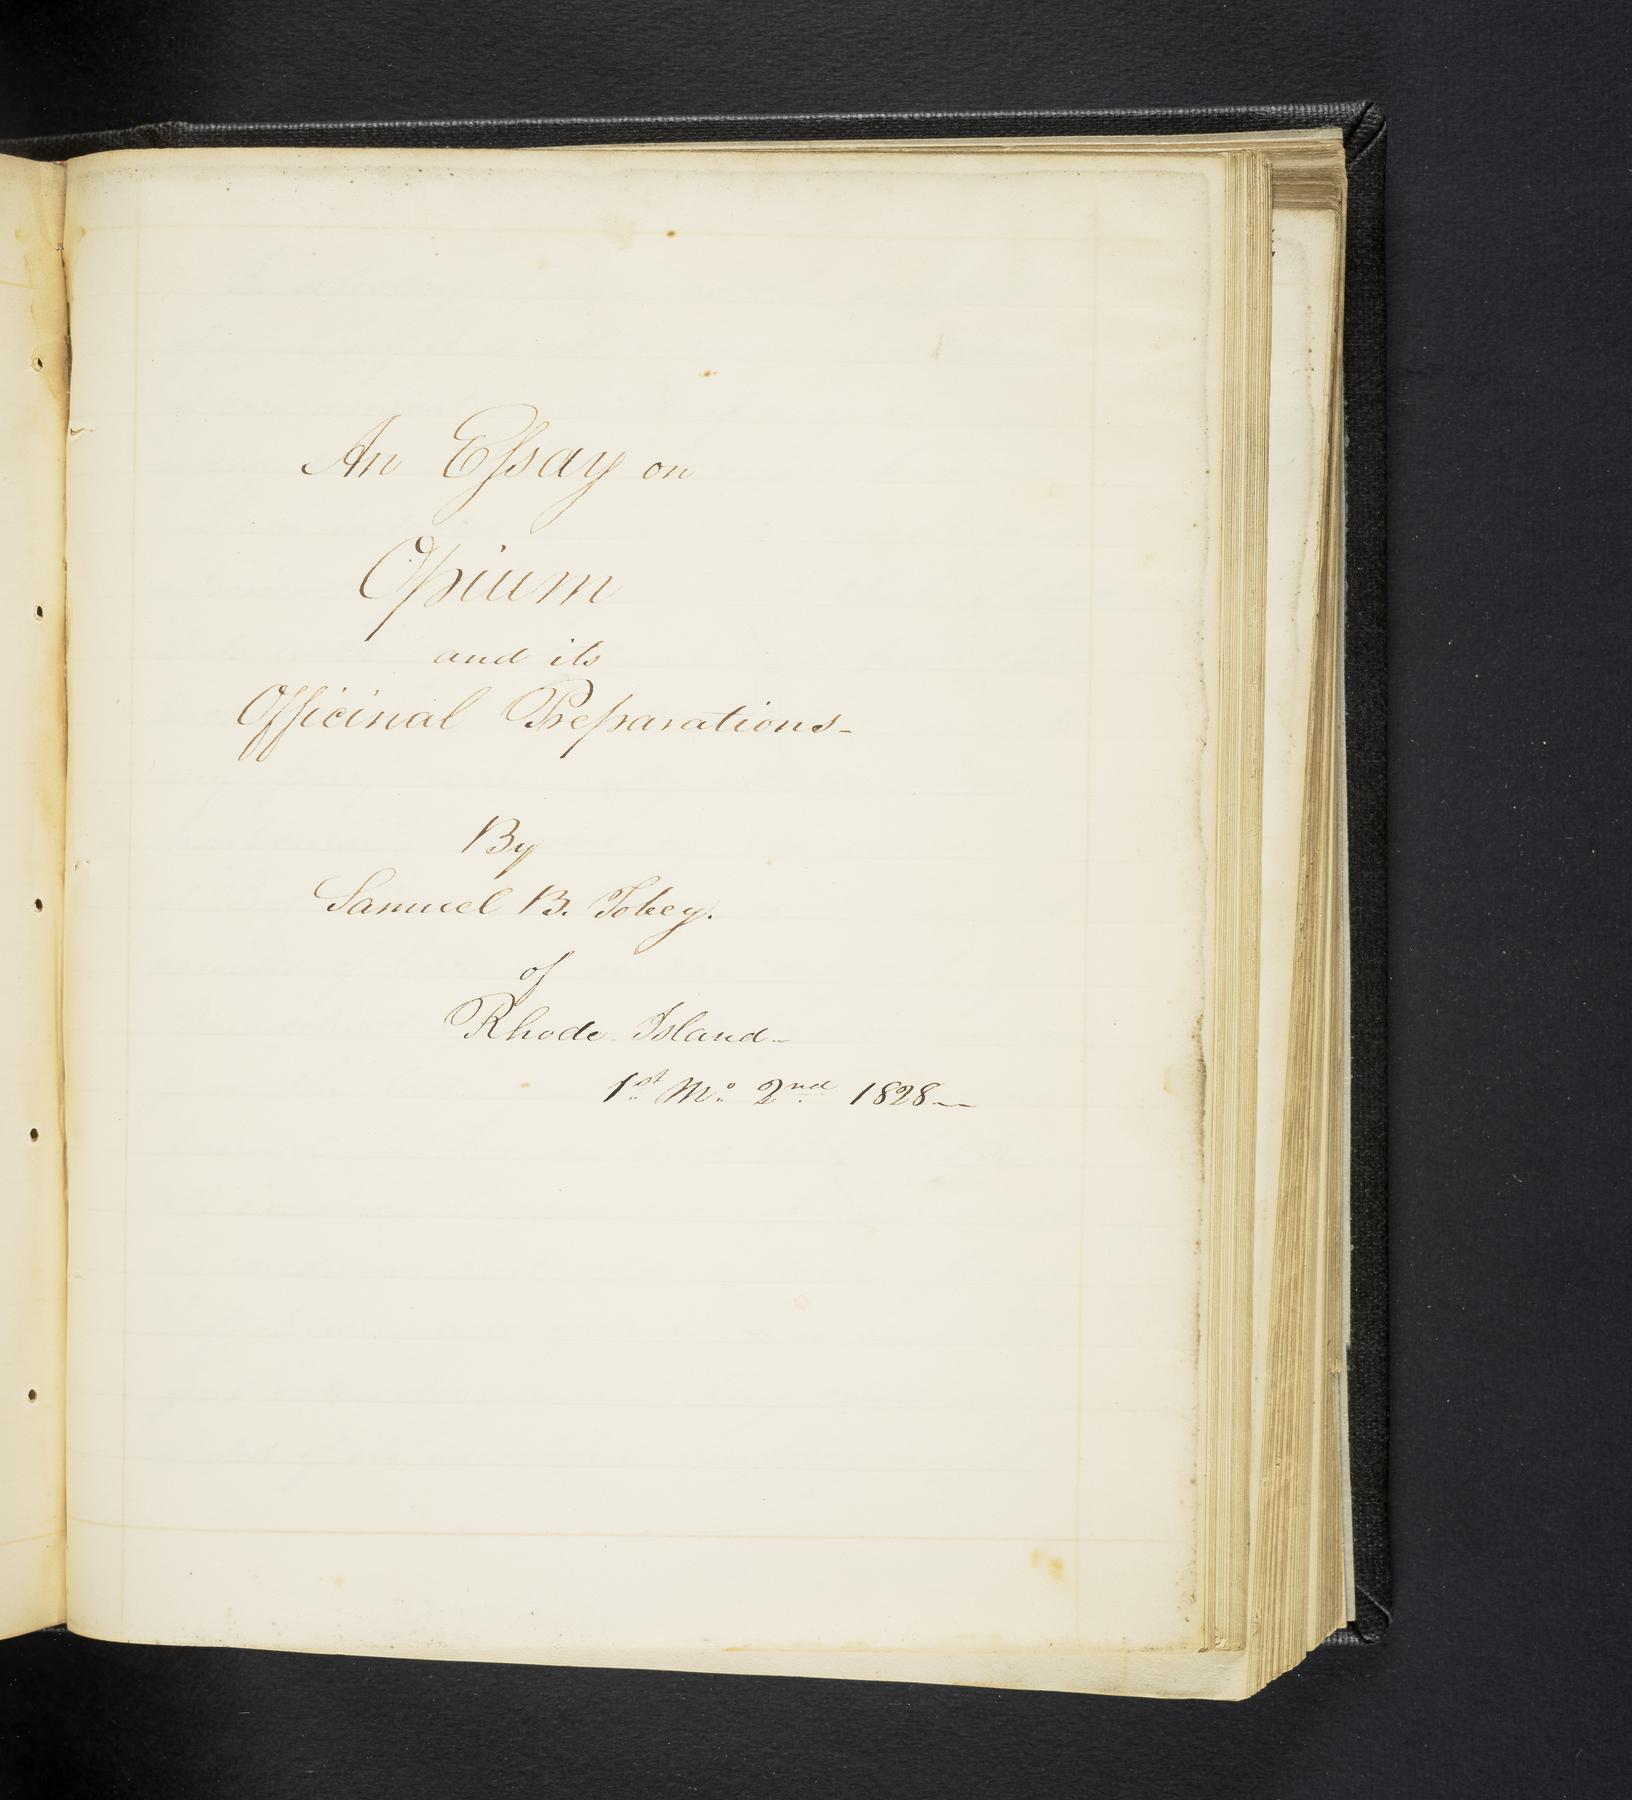 An Eſsay on
Opium
and its
Officinal Preparations-
By
Samuel B. Tobey.
of
Rhode Island-
1st Mo 2nd 1828-